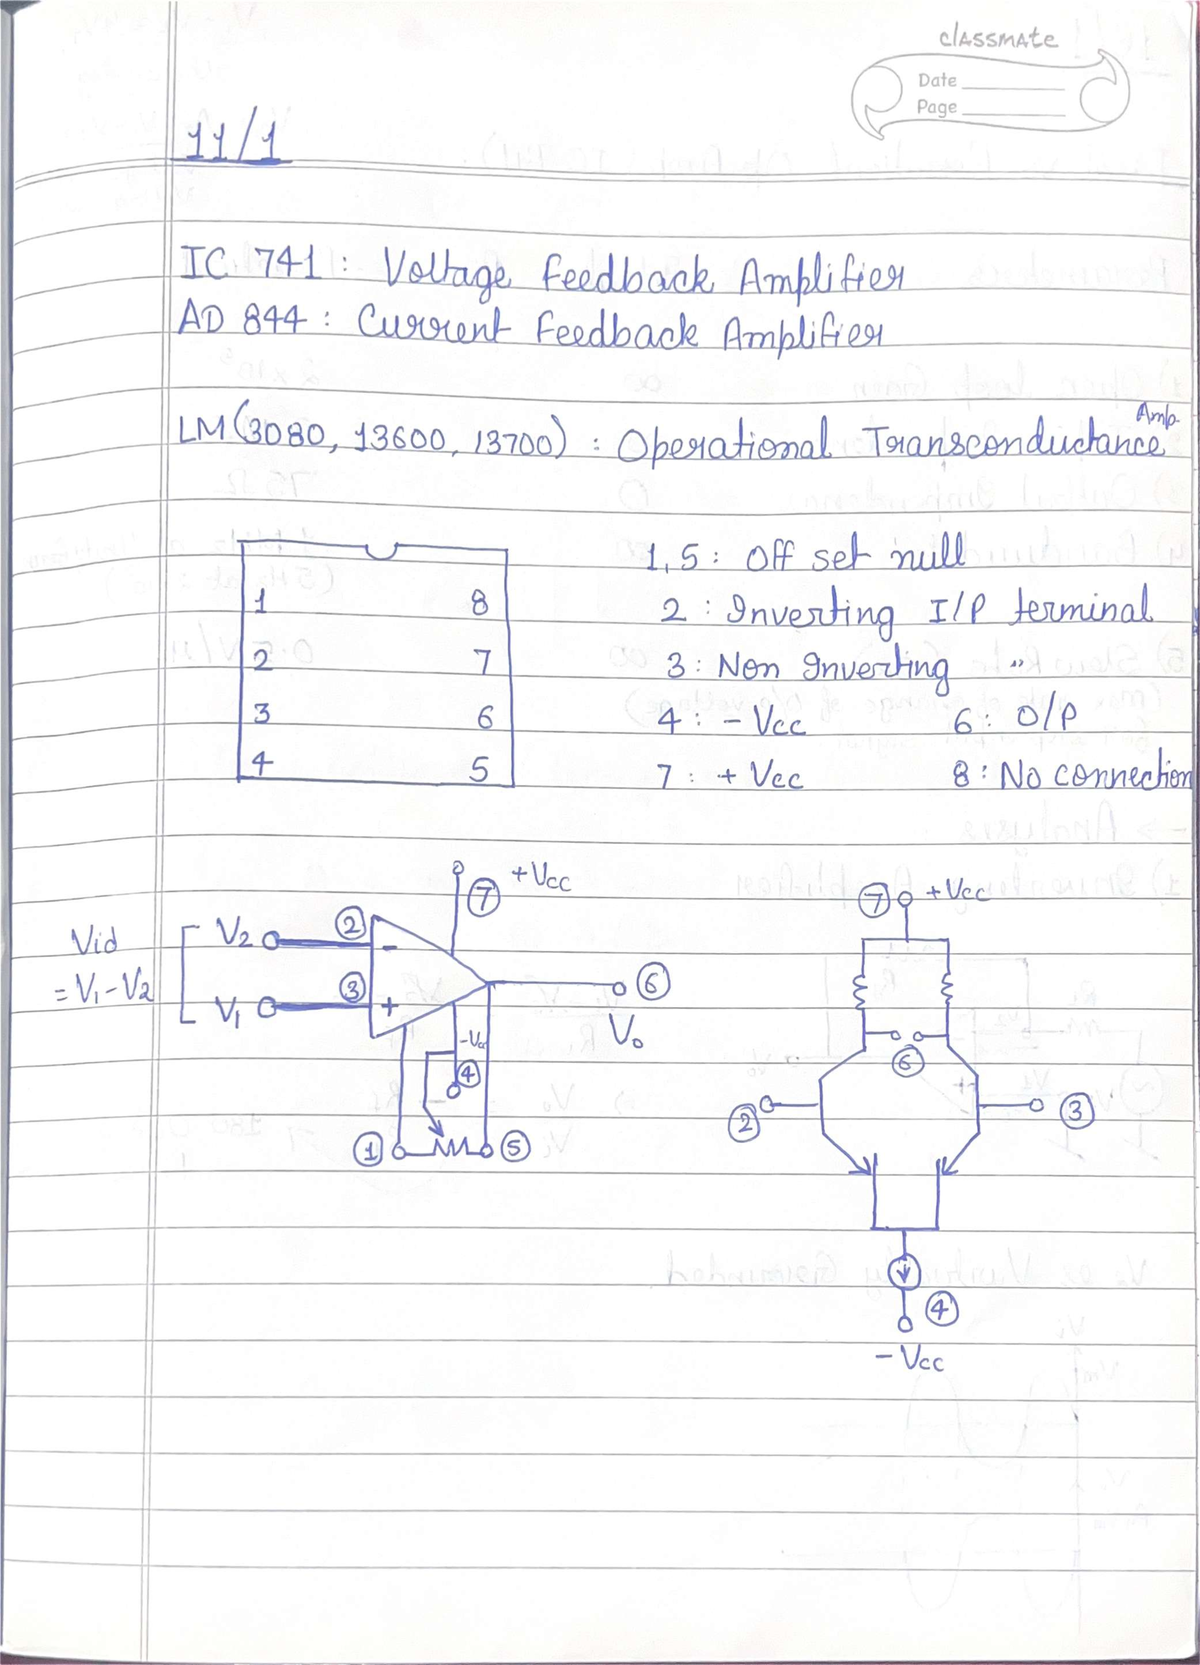 classmate
Date
Page
11/1
IC 741 : Voltage Feedback Amplifier
AD 844 : Current Feedback Amplifier
Amp.
LM (3080, 13600, 13700) : Operational Transconductance
1 8
2 7
3 6
4 5
1, 5 : Off set null
2 : Inverting I/P terminal
3 : Non Inverting "
4 : - Vcc 6 : O/P
7 : + Vcc 8 : No connection
Vid
= V1 - V2
V2 ② -
V1 ③ +
⑦ +Vcc
⑥
Vo
-Vcc
④
① ⑤
⑦ +Vcc
⑥
② ③
④
- Vcc